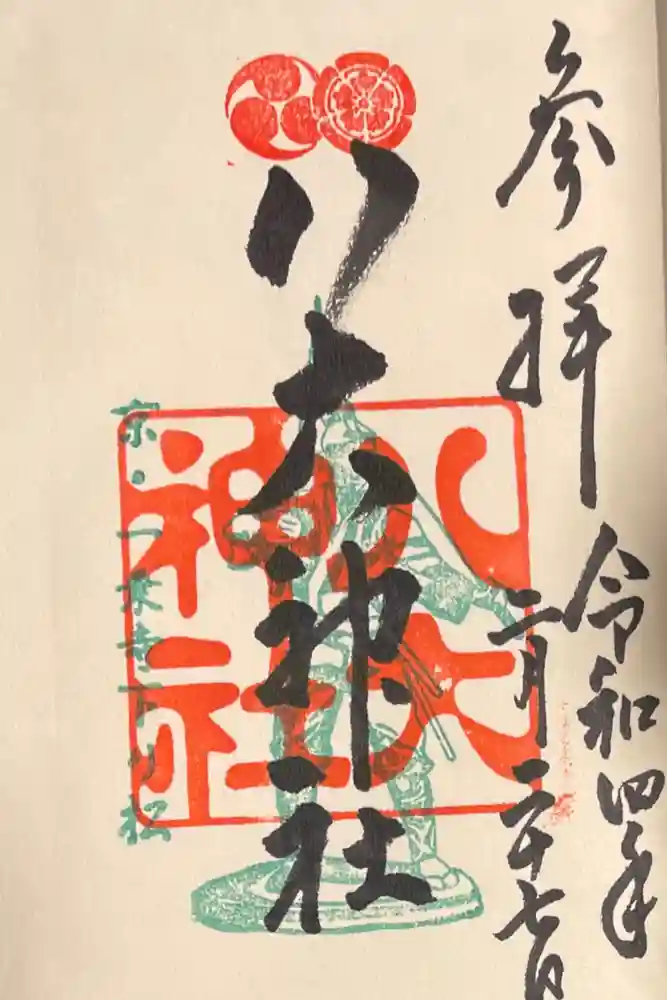 参拝
令和四年
二月二十七日
八大神社
八大
神社
京・一乗寺下り松